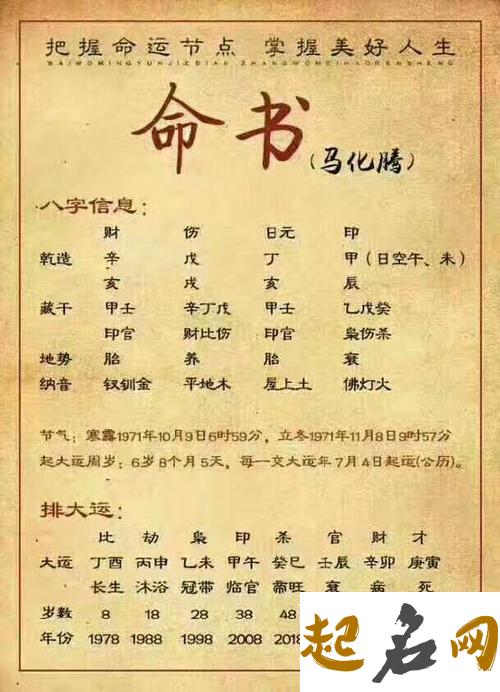 把握命运节点 掌握美好人生
BAIWOMINGYUNJIEDIAN ZHANGWOMEIHAORENSHENG
命书
(马化腾)
八字信息：
财 伤 日元 印
乾造 辛 戊 丁 甲(日空午、未)
亥 戌 亥 辰
藏干 甲壬 辛丁戊 甲壬 乙戊癸
印官 财比伤 印官 枭伤杀
地势 胎 养 胎 衰
纳音 钗钏金 平地木 屋上土 佛灯火
节气：寒露1971年10月9日6时59分，立冬1971年11月8日9时57分
起大运周岁：6岁8个月5天，每一交大运年7月4日起运(公历)。
排大运：
比 劫 枭 印 杀 官 财 才
大运 丁酉 丙申 乙未 甲午 癸巳 壬辰 辛卯 庚寅
长生 沐浴 冠带 临官 帝旺 衰 病 死
岁数 8 18 28 38 48
年份 1978 1988 1998 2008 2018
起名网